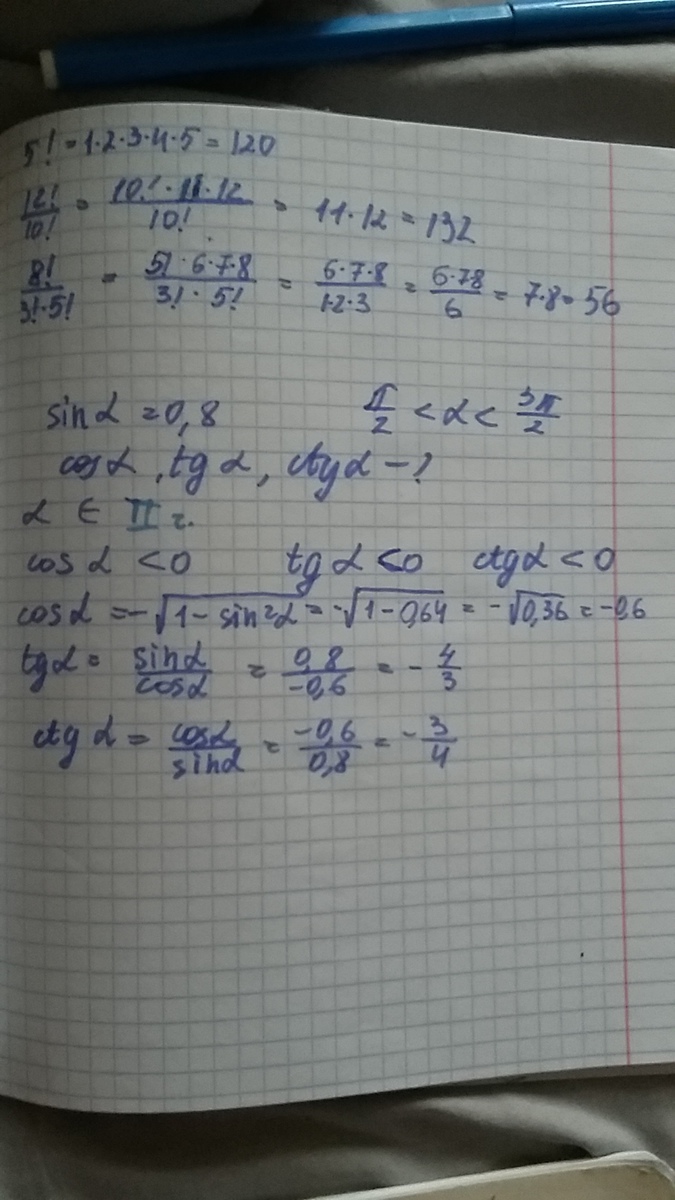 5! = 1·2·3·4·5 = 120
12!/10! = 10!·11·12/10! = 11·12 = 132
8!/3!·5! = 5!·6·7·8/3!·5! = 6·7·8/1·2·3 = 6·7·8/6 = 7·8 = 56
sinα = 0,8 π/2 < α < 3π/2
cosα, tgα, ctgα - ?
α ∈ II г.
cosα < 0 tgα < 0 ctgα < 0
cosα = -√1-sin²α = -√1-0,64 = -√0,36 = -0,6
tgα = sinα/cosα = 0,8/-0,6 = -4/3
ctgα = cosα/sinα = -0,6/0,8 = -3/4